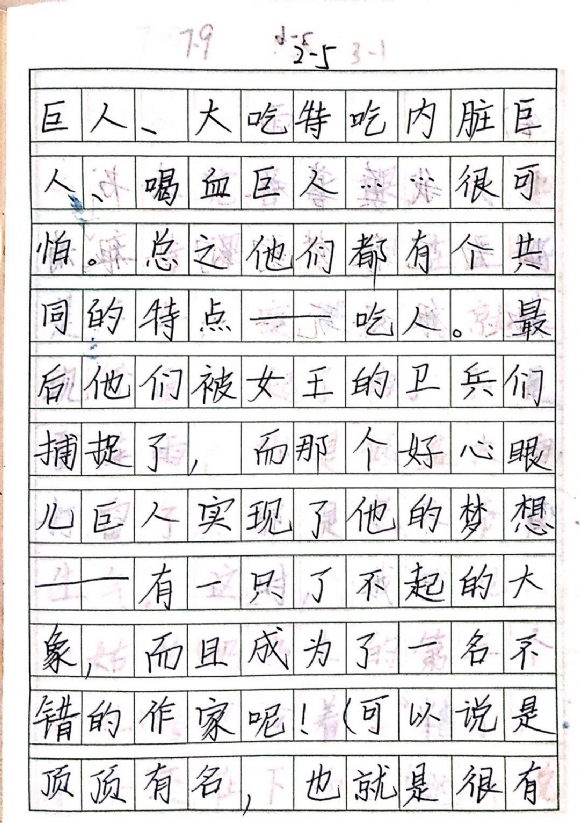 7-9 2-5 3-1
巨人、大吃特吃内脏巨
人、喝血巨人……很可
怕。总之他们都有个共
同的特点——吃人。最
后他们被女王的卫兵们
捕捉了，而那个好心眼
儿巨人实现了他的梦想
——有一只了不起的大
象，而且成为了一名不
错的作家呢！（可以说是
顶顶有名，也就是很有